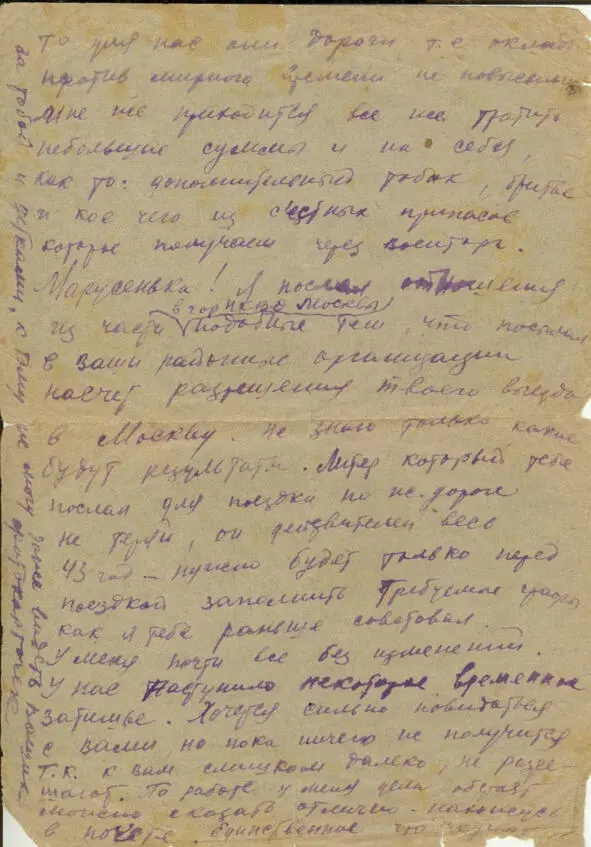 то для нас они дороги т.е оклады
против мирного времени не повысили
Мне же приходится все же тратить
небольшие суммы и на себя,
как то: дополнительный табак, бритье
и кое чего из с'естных припасов
которые получаем через военторг.
Марусенька! Я послал отношения
из части в гор НКВД Москвы подобные тем, что посылал
в ваши районные организации
насчет разрешения твоего выезда
в Москву. Не знаю только какие
будут результаты. Литер который тебе
послал для поездки по ж. дороге
не теряй, он действителен весь
43 год – нужно будет только перед
поездкой заполнить требуемые графы
как я тебе раньше советовал.
У меня почти все без изменений.
У нас наступило некоторое временное
затишье. Хочется сильно повидаться
с вами, но пока ничего не получится
т.к. к вам слишком далеко, не разре-
шают. По работе у меня дела обстоят
можно сказать отлично – нахожусь
в почете. Единственное что
за тобой и детками, к тому же не могу даже видеть ваших